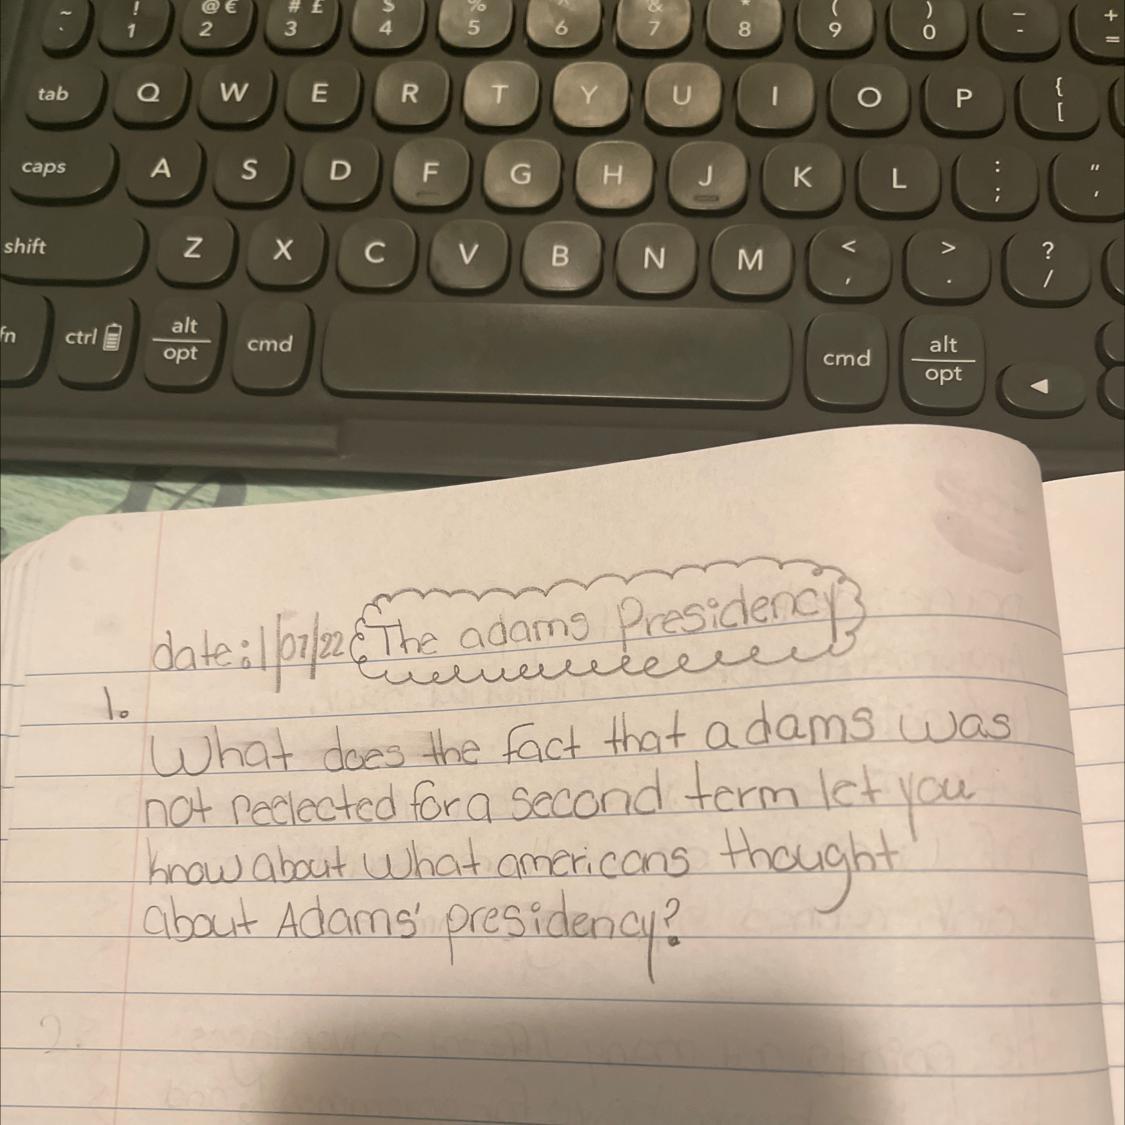 ~ ! @ € # £ $ % ^ & * ( ) _ +
` 1 2 3 4 5 6 7 8 9 0 - =
tab Q W E R T Y U I O P { [
caps A S D F G H J K L : ; " '
shift Z X C V B N M < , > . ? /
fn ctrl alt opt cmd cmd alt opt ◄
date:1/07/22 The adams Presidency
1.
What does the fact that adams was
not reelected for a second term let you
know about what americans thought
about Adams' presidency?
2.